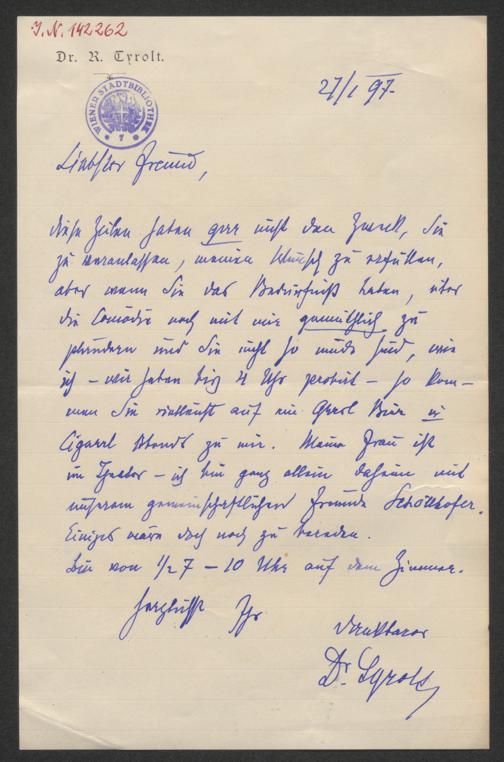 J.N. 142262
Dr. R. Tyrolt.
WIENER STADTBIBLIOTHEK
27/1 97.
Liebster Freund,
diese Zeilen haben gar nicht den Zweck, Sie
zu veranlassen, meinen Wunsch zu erfüllen,
aber wenn Sie das Bedürfniß haben, über
die Comödie noch mit mir gemüthlich zu
plaudern und Sie nicht so müde sind, wie
ich – wir haben bis 4 Uhr probirt – so kom-
men Sie vielleicht auf ein Glasl Bier u
Cigarrl Abends zu mir. Meine Frau ist
im Theater – ich bin ganz allein daheim mit
unserem gemeinschaftlichen Freunde Schöllhofer.
Einiges wäre doch noch zu bereden.
Bin von 1/2 7 – 10 Uhr auf dem Zimmer.
Herzlichst Ihr
dankbarer
Dr. Tyrolt